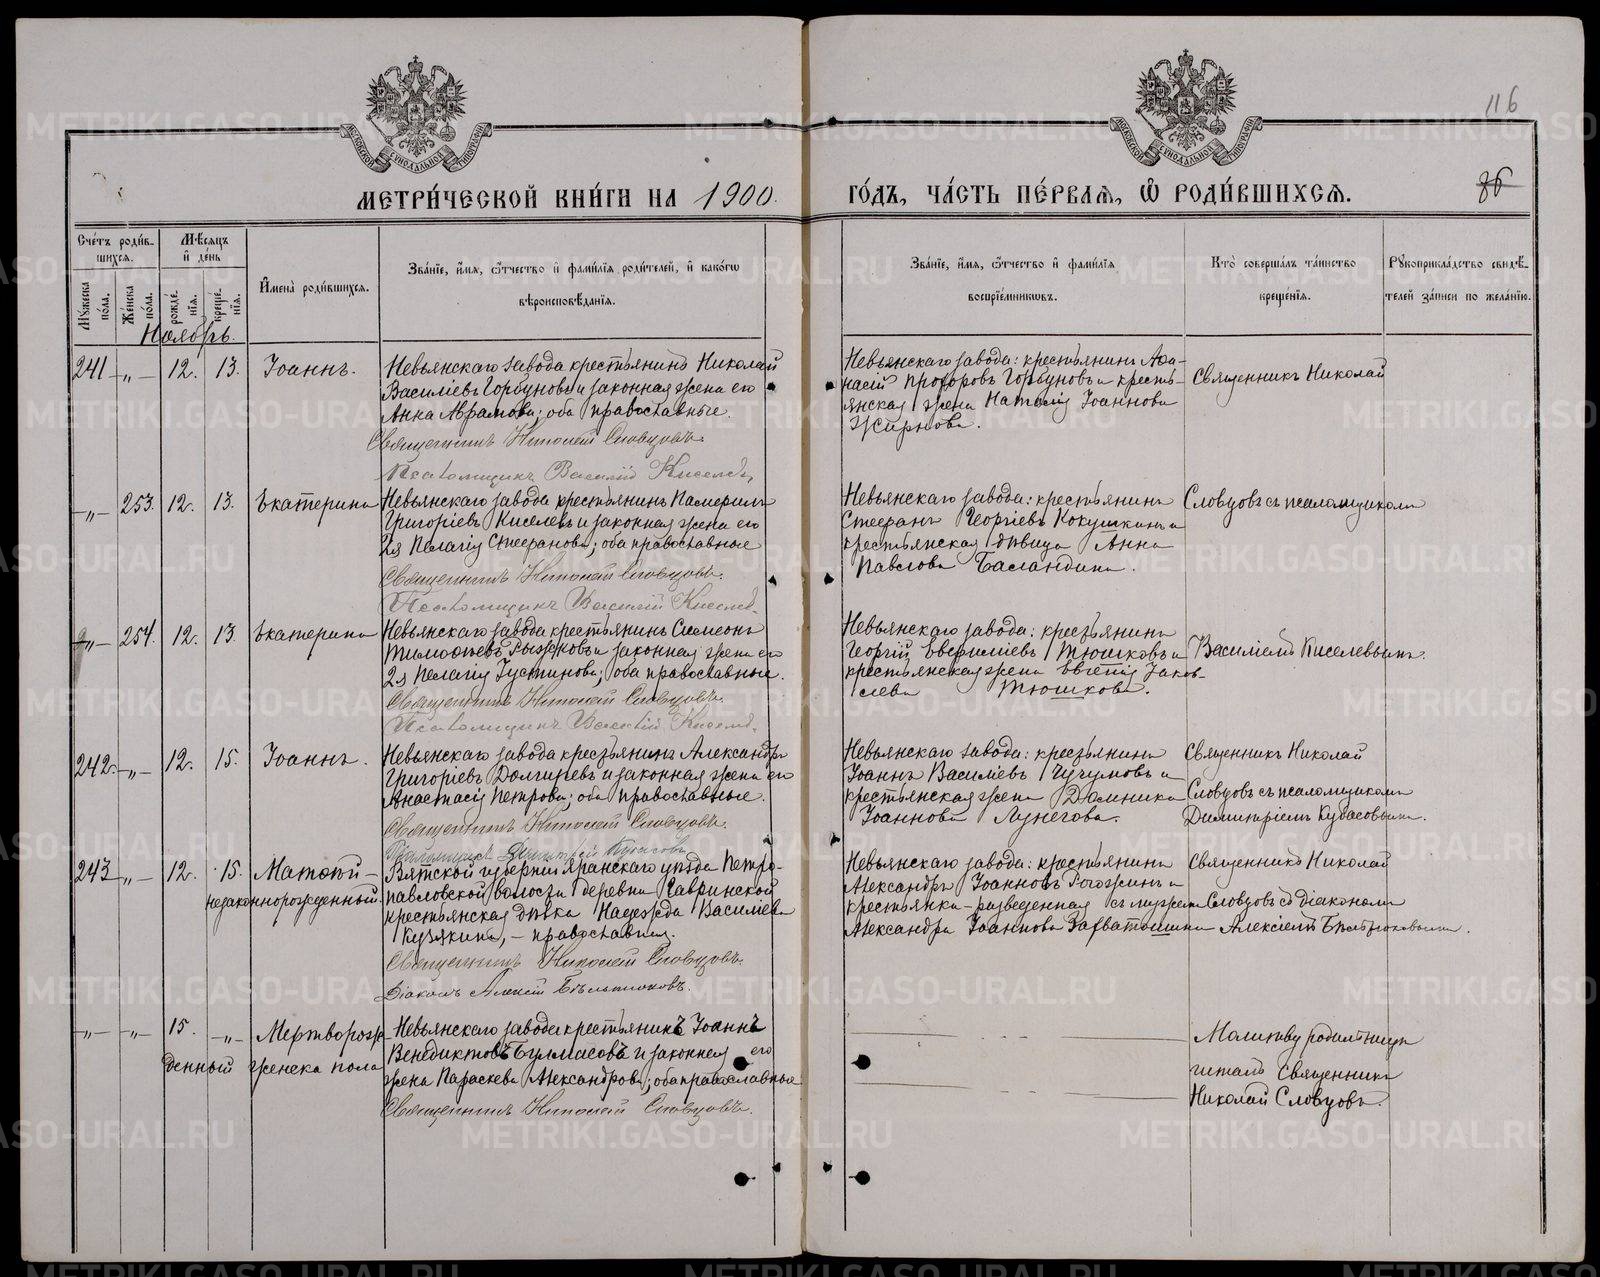 116
МОСКОВСКОЙ СѴНОДАЛЬНОЙ ТИПОГРАФІИ
МОСКОВСКОЙ СѴНОДАЛЬНОЙ ТИПОГРАФІИ
МЕТРИ́ЧЕСКОЙ КНИ́ГИ НА 1900. ГО́ДЪ, ЧА́СТЬ ПЕ́РВАЯ, Ѽ РОДИ́ВШИХСЯ.
86
Сче́тъ роди́в-
шихся.
Мѣ́сяцъ
и҆ де́нь
Му́жеска
по́ла.
Же́нска
по́ла.
рожде́-
нїя.
креще́-
нїя.
И҆мена̀ роди́вшихся.
Зва́нїе, и҆́мя, ѻ҆́тчество и҆ фами́лїя роди́телей, и҆ како́гѡ
вѣроисповѣ́данїя.
Зва́нїе, и҆́мя, ѻ҆́тчество и҆ фами́лїя
воспрїе́мниковъ.
Кто̀ соверша́лъ та́инство
креще́нїя.
Рꙋкоприкла́дство свидѣ́-
телей за́писи по жела́нїю.
Ноябрь.
241 —„— 12. 13. Іоаннъ.
Невьянскаго завода крестьянинъ Николай
Василіевъ Горбуновъ и законная жена его
Анна Аврамова; оба православные.
Священникъ Николай Словцовъ.
Псаломщикъ Василій Киселевъ.
Невьянскаго завода: крестьянинъ Аѳа-
насій Прохоровъ Горбуновъ и кресть-
янская жена Наталія Іоаннова
Жирнова.
Священникъ Николай
—„— 253. 12. 13. Екатерина
Невьянскаго завода крестьянинъ
Григоріевъ Киселевъ и законная жена его
2я Пелагія Стефанова; оба православные
Священникъ Николай Словцовъ.
Псаломщикъ Василій Киселевъ.
Невьянскаго завода: крестьянинъ
Стефанъ Георгіевъ Кокушкинъ и
крестьянская дѣвица Анна
Павлова Баландина.
Словцовъ съ псаломщикомъ
—„— 254. 12. 13. Екатерина
Невьянскаго завода крестьянинъ Симеонъ
Тимоѳеевъ Рыжковъ и законная жена его
2я Пелагія Іустинова; оба православные.
Священникъ Николай Словцовъ.
Псаломщикъ Василій Киселевъ.
Невьянскаго завода: крестьянинъ
Георгій Евѳиміевъ Тюшковъ и
крестьянская жена Евгенія Іаков-
лева Тюшкова.
Василіемъ Киселевымъ.
242. —„— 12. 15. Іоаннъ.
Невьянскаго завода крестьянинъ Александръ
Григоріевъ Долгиревъ и законная жена его
Анастасія Петрова; оба православные.
Священникъ Николай Словцовъ.
Псаломщикъ Димитрій Кубасовъ
Невьянскаго завода: крестьянинъ
Іоаннъ Василіевъ Чучумовъ и
крестьянская жена Домника
Іоаннова Лунегова.
Священникъ Николай
Словцовъ съ псаломщикомъ
Димитріемъ Кубасовымъ.
243 —„— 12. 15. Матѳей —
незаконнорожденный.
Вятской губерніи Яранскаго уѣзда Петро-
павловской волости деревни Гавринской
крестьянская дѣвка Надежда Василіева
Кузякина, — православная.
Священникъ Николай Словцовъ.
Діаконъ Алексій Бѣльтюковъ.
Невьянскаго завода: крестьянинъ
Александръ Іоанновъ Рогожинъ и
крестьянка — разведенная съ мужемъ
Александра Іоаннова Захватошина
Священникъ Николай
Словцовъ съ діакономъ
Алексіемъ Бѣльтюковымъ.
—„— —„— 15. —„— Мертворож-
денный женска пола
Невьянскаго завода крестьянинъ Іоаннъ
Венедиктовъ Булмасовъ и законная его
жена Параскева Александрова; оба православные
Священникъ Николай Словцовъ.
Молитву родильницѣ
читалъ Священникъ
Николай Словцовъ.
METRIKI.GASO-URAL.RU